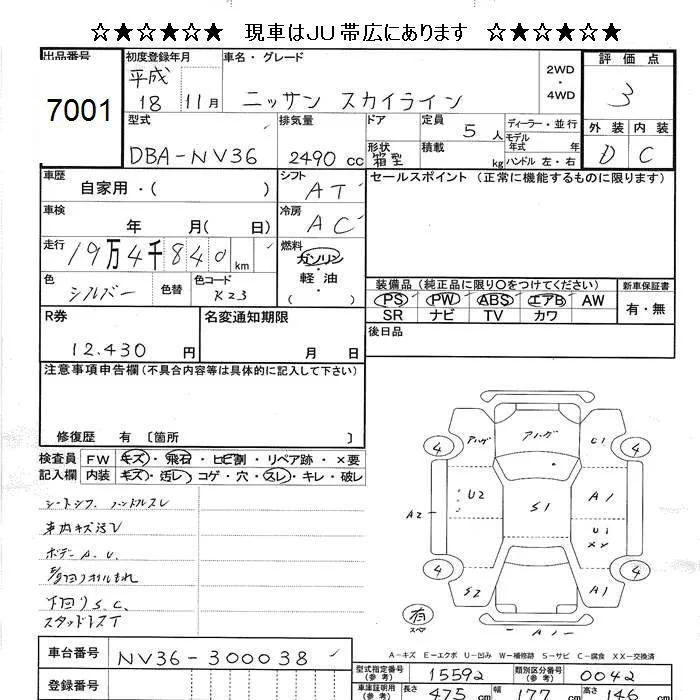 ☆★☆★☆★☆ 現車はJU帯広にあります ☆★☆★☆★☆
出品番号 初度登録年月 車名・グレード 2WD・4WD 評価点
7001 平成 18 11月 ニッサン スカイライン 3
型式 排気量 ドア 定員 5人 ディーラー・並行 外装 内装
DBA-NV36 2490 cc 形状 箱型 積載 kg モデル年式 年式 ハンドル 左・右 D C
車歴 自家用・( ) シフト AT セールスポイント (正常に機能するものに限ります)
車検 年 月( 日) 冷房 AC
走行 19万4千840 km 燃料 ガソリン・軽油 ( )
色 シルバー 色替 色コード K23
装備品(純正品に限り○をつけてください) 新車保証書
PS PW ABS エアB AW 有・無
SR ナビ TV カワ
R券 12.430 円 名変通知期限 月 日 後日品
注意事項申告欄(不具合内容等は具体的に記入して下さい)
修復歴 有 〔箇所 〕
検査員記入欄 FW キズ・飛石・ヒビ割・リペア跡・×要
内装 キズ・汚レ・コゲ・穴・スレ・キレ・破レ
シートシワ ハンドルスレ
車内キズ汚レ
ボデー A.U.
下回りS.C.
スタッドレスT
アハゲ アハゲ U1
4 4
U2 S1 A1
A2 U1 XX
4 4
S2 A1
有 スペア A1
A-キズ E-エクボ U-凹み W-補修跡 S-サビ C-腐食 XX-交換済
車台番号 NV36-300038
型式指定番号(参考) 15592 類別区分番号(参考) 0042
登録番号
車庫証明用(参考) 長さ 475 cm 幅 177 cm 高さ 146 cm